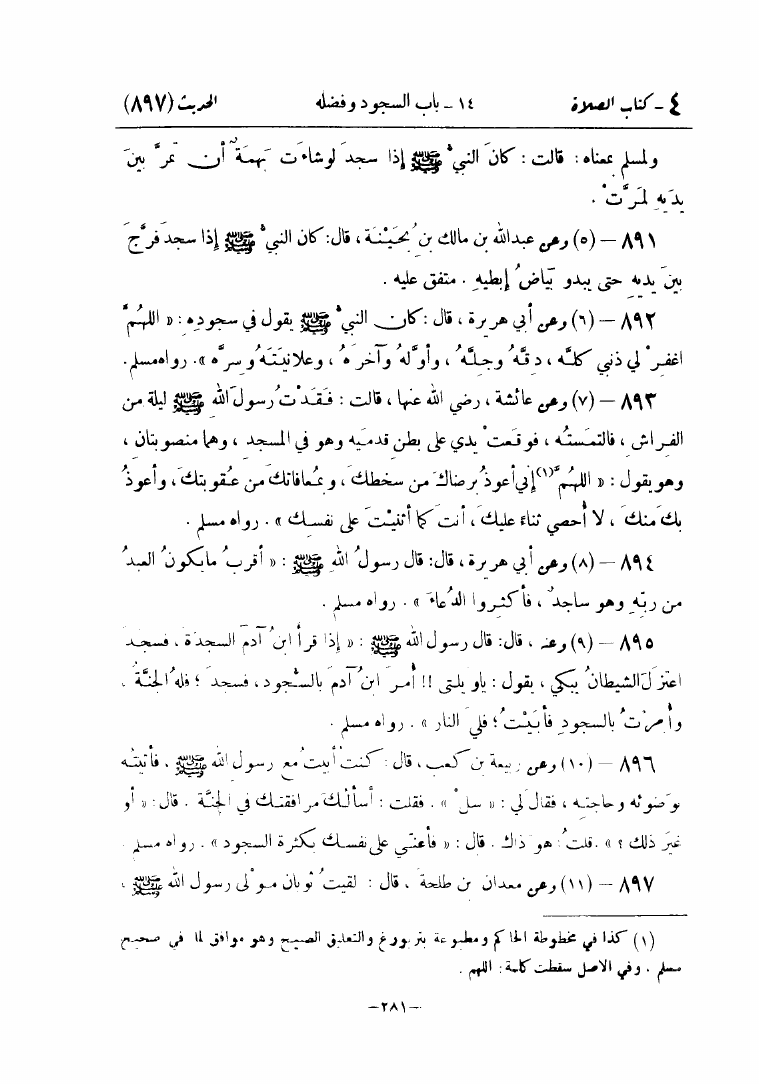 ٤ ـ كتاب الصلاة ١٤ ـ باب السجود وفضله الحديث (٨٩٧)
ولمسلم بمعناه : قالت : كانَ النبيُّ ﷺ إذا سجدَ لوشاءَت بَهمَةٌ أن تمرَّ بينَ
يدَيهِ لمرَّتْ .
٨٩١ – (٥) وعن عبدالله بن مالك بنِ بُحَيْنَةَ ، قال: كان النبيُّ ﷺ إذا سجدَ فرَّجَ
بينَ يديهِ حتى يبدو بَياضُ إبطيهِ . متفق عليه .
٨٩٢ – (٦) وعن أبي هريرة ، قال : كان النبيُّ ﷺ يقول في سجودِه : « اللهُمَّ
اغفِرْ لي ذنبي كلَّه ، دِقَّهُ وجِلَّهُ ، وأوَّلَهُ وآخرَهُ ، وعلانيَتَهُ وسِرَّه ». رواه مسلم.
٨٩٣ – (٧) وعن عائشة ، رضي الله عنها ، قالت : فَقَدْتُ رسولَ الله ﷺ ليلة من
الفراش ، فالتمستُه ، فوقعَتْ يدي على بطنِ قدمَيه وهو في المسجد ، وهما منصوبتان ،
وهو يقول : « اللهُمَّ(١) إني أعوذُ برضاكَ من سخطكَ ، وبمُعافاتكَ من عُقوبتكَ ، وأعوذُ
بكَ منكَ ، لا أُحصي ثناءً عليكَ ، أنتَ كما أثنيْتَ على نفسكَ » . رواه مسلم .
٨٩٤ – (٨) وعن أبي هريرة ، قال: قال رسولُ اللهِ ﷺ : « أقربُ مايكونُ العبدُ
من ربِّهِ وهو ساجدٌ ، فأكثِروا الدُّعاءَ » . رواه مسلم .
٨٩٥ – (٩) وعنه ، قال: قال رسول الله ﷺ : « إذا قرأ ابنُ آدمَ السجدةَ ، فسجدَ
اعتزلَ الشيطانُ يبكي ، يقول : ياويلتى !! أُمرَ ابنُ آدمَ بالسُّجود ، فسجدَ ؛ فلهُ الجنَّةُ ،
وأُمِرْتُ بالسجودِ فأبَيْتُ ؛ فليَ النار » . رواه مسلم .
٨٩٦ – (١٠) وعن ربيعة بن كعب ، قال : كنتُ أبيتُ مع رسول الله ﷺ ، فأتيتُه
بوَضوئه وحاجته ، فقال لي : « سلْ » . فقلت : أسألكَ مرافقتكَ في الجنَّة . قال: « أو
غيرَ ذلك ؟ » . قلتُ: هو ذاك . قال : « فأعنّي على نفسكَ بكثرة السجود » . رواه مسلم .
٨٩٧ – (١١) وعن معدان بن طلحةَ ، قال : لقيتُ ثوبان مولى رسول الله ﷺ ،
(١) كذا في مخطوطة الحاكم ومطبوعة بتربورغ والتعليق الصبيح وهو موافق لما في صحيح
مسلم ، وفي الاصل سقطت كلمة : اللهم .
–٢٨١–